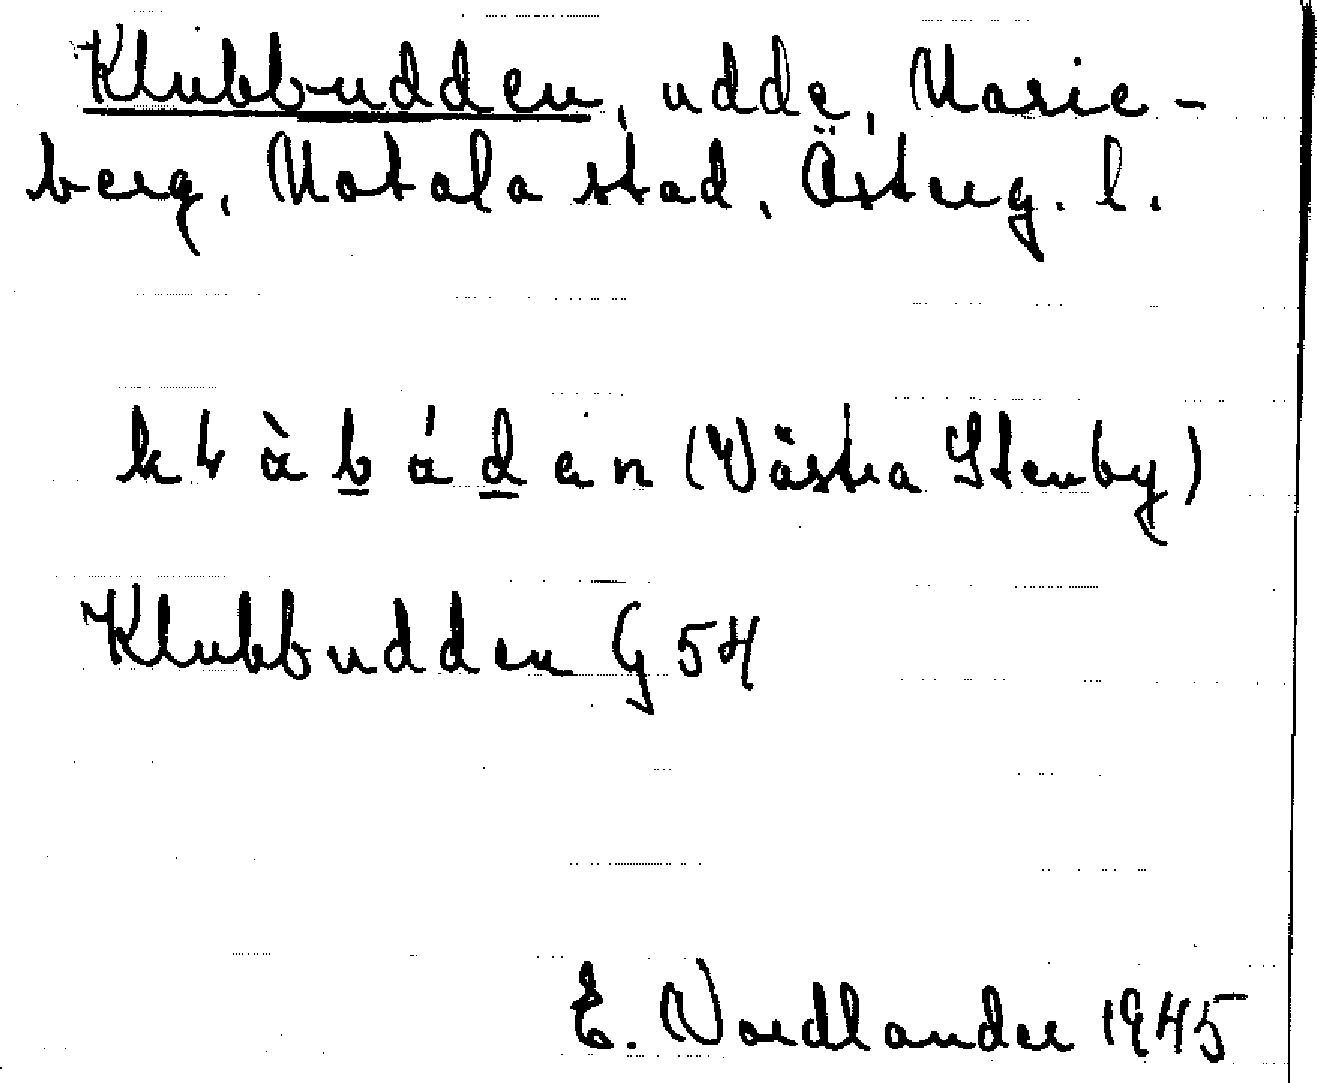 Klubbudden, udde, Marie-
berg, Motala stad, Österg. l.
(Västra Stenby)
Klubbudden G 54
E. Nordlander 1945